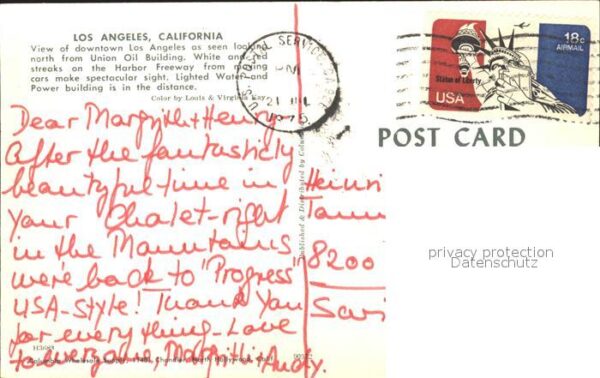 LOS ANGELES, CALIFORNIA
View of downtown Los Angeles as seen looking
north from Union Oil Building. White and red
streaks on the Harbor Freeway from moving
cars make spectacular sight. Lighted Water and
Power building is in the distance.
Color by Louis & Virginia Kay
Dear Margrith + Henry
After the fantasticly
beautyful time in
Your Chalet-right
in the Mountains
we're back to "Progress
USA-Style! Thank You
for every thing - Love
to everyone, Margrith + Andy.
Published & Distributed by
U.S. POSTAL SERVICE
PM
21 JUL
18c
AIRMAIL
Statue of Liberty
USA
POST CARD
Heinri
Tann
8200
Savi
privacy protection
Datenschutz
Columbia Wholesale Supply, 11401 Chandler, North Hollywood, Calif.